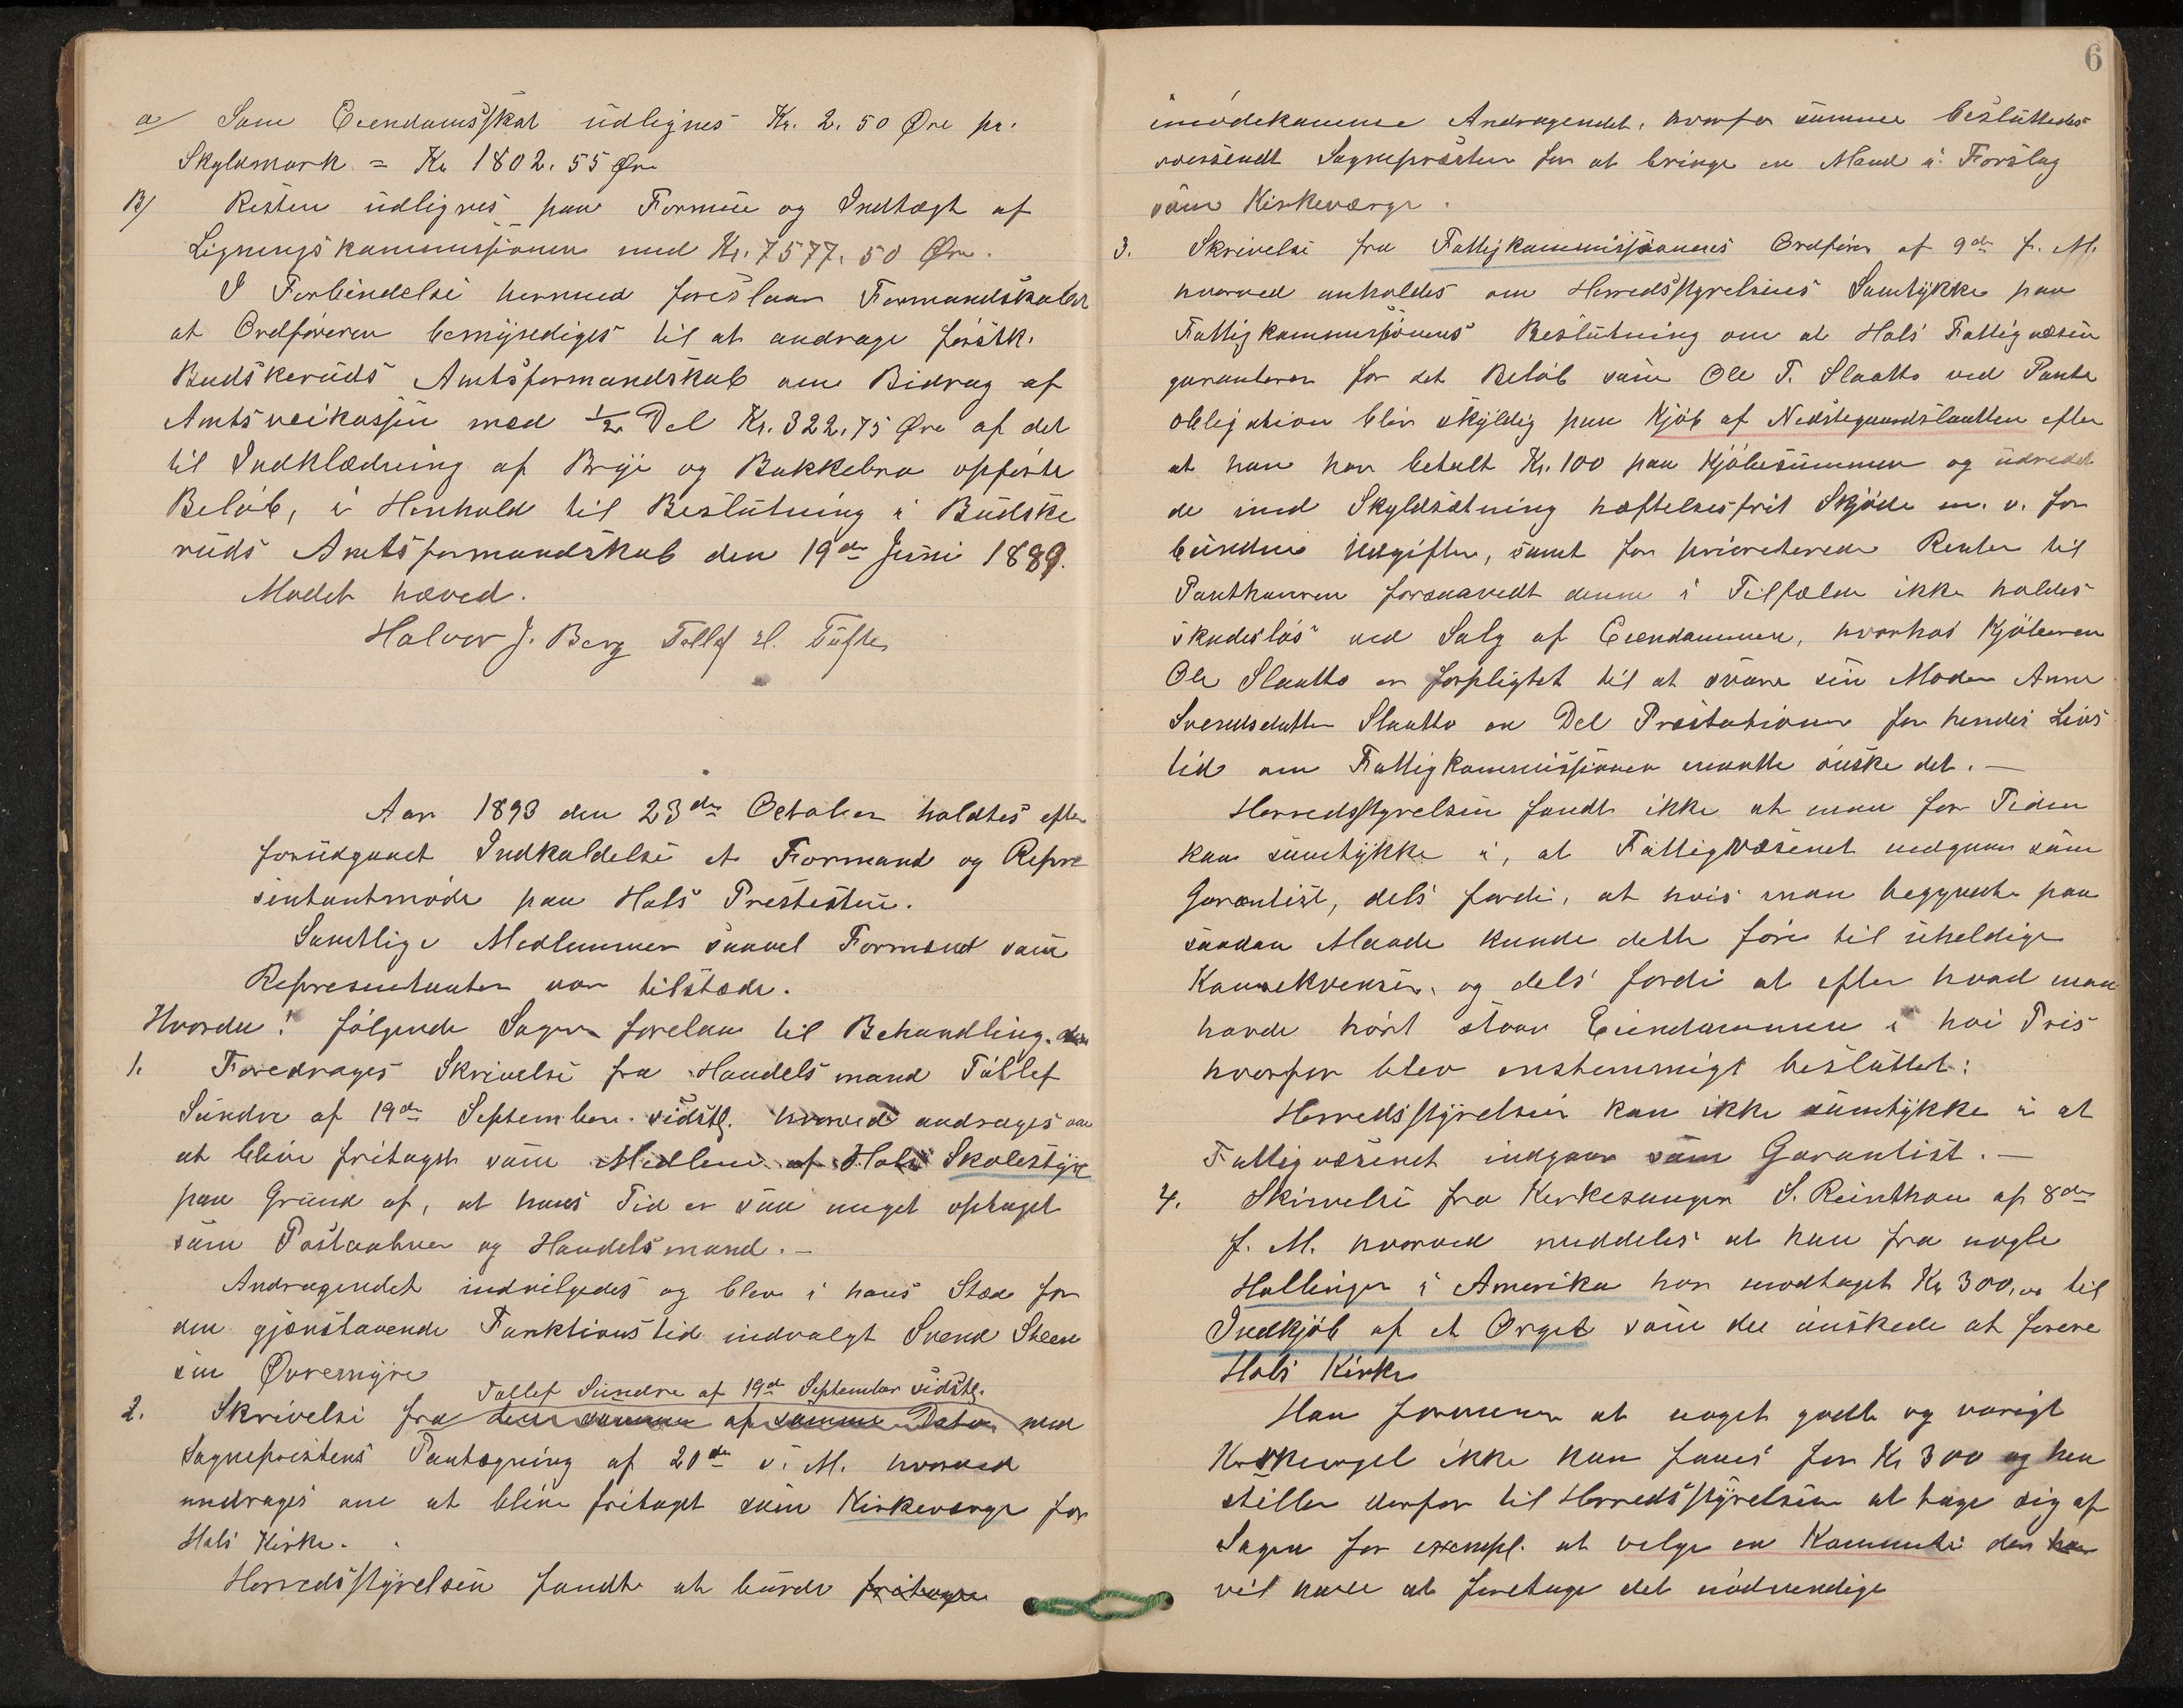 a/ Som Eiendomsskat udlignes Kr. 2.50 Øre pr.
Skyldmark = Kr 1802.55 Øre
B/ Resten udlignes paa Formue og Indtægt af
Ligningskommissionen med Kr. 7577.50 Øre.
I Forbindelse hermed foreslaar Formandskabet
at Ordføreren bemyndiges til at andrage
Budskeruds Amtsformandskab om Bidrag af
Amtsveikassen med 1/2 Del Kr. 322,75 Øre af det
til Indklædning af Brye og Bakkebro opførte
Beløb, i Henhold til Beslutning i Budske
ruds Amtsformandskab den 19de Juni 1889.
Mødet hæved.
Halvor J. Berg Tollef H. Tufte
Aar 1893 den 23de October holdtes efter
forudgaaet Indkaldelse et Formand og Repræ
sentantmøde paa Hols Prestestue.
Samtlige Medlemmer saavel Formænd som
Representanter var tilstæde.
Hvorda: følgende Sager forelaa til Behandling.
1. Foredrages Skrivelse fra Handelsmand Tollef
Sundre af 19de September sidstl. hvorved andrages om
at blive fritaget som Medlem af Hols Skolestyre
paa Grund af, at hans Tid er saa meget optaget
som Postaabner og Handelsmand. —
Andragendet indvilgedes og blev i hans Sted for
den gjenstaaende Funktionstid indvalgt Svend Steen
sen Øvremyre
Tollef Sundre af 19de September sidstl.
2. Skrivelse fra den samme af samme Dato med
Sogneprestens Paategning af 20de s. M. hvorved
andrages om at blive fritaget som Kirkeværge for
Hols Kirke.
Herredsstyrelsen fandt at burde fritage
6
imødekomme Andragendet, hvorfor samme besluttedes
oversendt Sognepræsten for at bringe en Mand i Forslag
som Kirkeværge.
3. Skrivelse fra Fattigkommissionens Ordfører af 9de f. M.
hvorved anholdes om Herredsstyrelsens Samtykke paa
Fattigkommissionens Beslutning om at Hols Fattigvæsen
garanterer for det Beløb som Ole T. Slaatto ved Pante
obligation blir skyldig paa Kjøb af Nedstegaardslaatten efter
at han har betalt Kr. 100 paa Kjøbesummen og udredet
de med Skyldsætning hæftelsesfrit Skjøde m. v. for
bundne Udgifter, samt for prioriterede Renter til
Panthaveren forsaavidt denne i Tilfælde ikke holdes
skadesløs ved Salg af Eiendommen, hvorhos Kjøberen
Ole Slaatto er forpligtet til at svare sin Moder Anne
Svendsdatter Slaatto en Del Præstationer for hendes Livs
tid om Fattigkommissionen maatte ønske det. —
Herredsstyrelsen fandt ikke at man for Tiden
kan samtykke i, at Fattigvæsenet indgaar som
Garantist, dels fordi, at hvis man begyndte paa
saadan Maade kunde dette føre til uheldige
Konsekvenser, og dels fordi at efter hvad man
havde hørt staar Eiendommen i høi Pris
hvorfor blev enstemmigt besluttet:
Herredsstyrelsen kan ikke samtykke i at
Fattigvæsenet indgaar som Garantist. —
4. Skrivelse fra Kirkesanger S. Reinthon af 8de
f. M. hvorved meddeles at han fra nogle
Hallinger i Amerika har modtaget Kr 300,00 til
Indkjøb af et Orgel som de ønskede at forære
Hols Kirke
Han formener at noget godt og varigt
Kirkeorgel ikke kan faaes for Kr 300 og hen
stiller derfor til Herredsstyrelsen at tage sig af
Sagen for exempl. at velge en Kommite der har
vil have at foretage det nødvendige